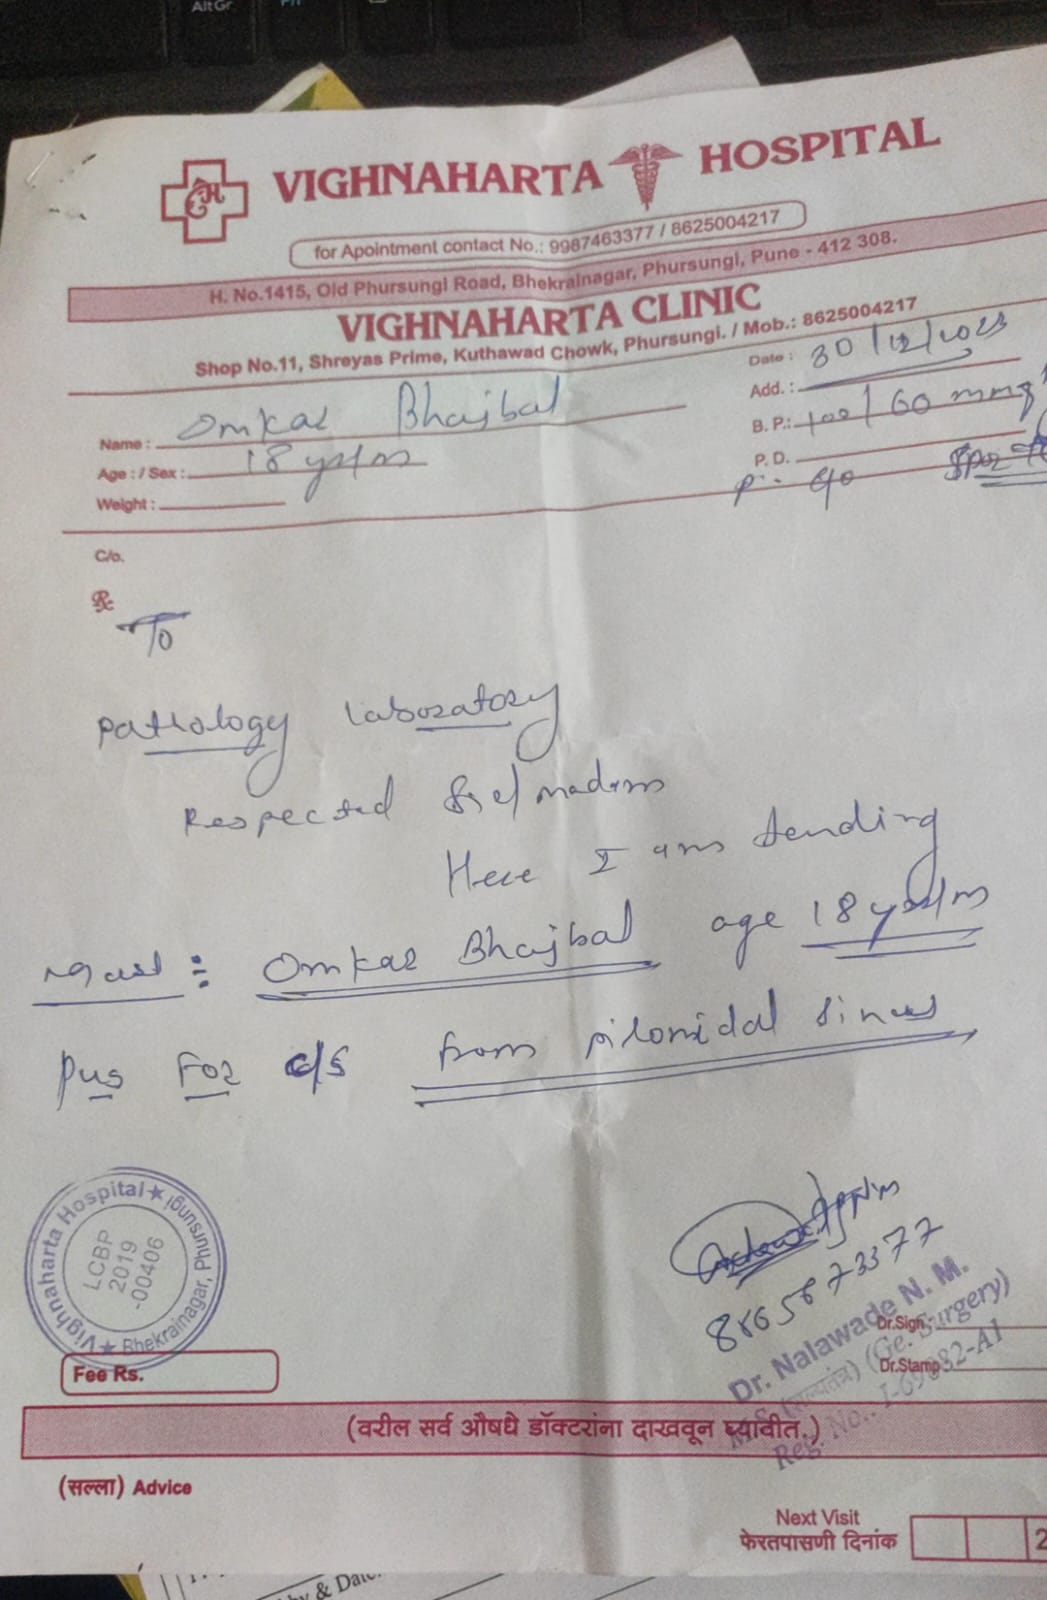 AltGr
VIGHNAHARTA HOSPITAL
for Apointment contact No.: 9987463377 / 8625004217
H. No.1415, Old Phursungi Road, Bhekrainagar, Phursungi, Pune - 412 308.
VIGHNAHARTA CLINIC
Shop No.11, Shreyas Prime, Kuthawad Chowk, Phursungi. / Mob.: 8625004217
Date : 30/12/2023
Name : Omkar Bhajbal
Add. :
Age : / Sex : 18 yrs/m
B. P.: 100/60 mmg
Weight :
P. D.
P:- 90 SPO2
C/o.
Rx
To
Pathology laboratory
Respected Sir/madam
Here I am sending
Omkar Bhajbal age 18 yrs/m
Pus For c/s from pilonidal sinus
Vighnaharta Hospital ★ Bhekrainagar, Phursungi ★
LCBP
2019
-00406
Dr. Nalawade N. M.
(Ge. Surgery)
Reg. No..
Dr.Sign.
Dr.Stamp
Fee Rs.
(वरील सर्व औषधे डॉक्टरांना दाखवून घ्यावीत.)
(सल्ला) Advice
Next Visit
फेरतपासणी दिनांक
2
& Date